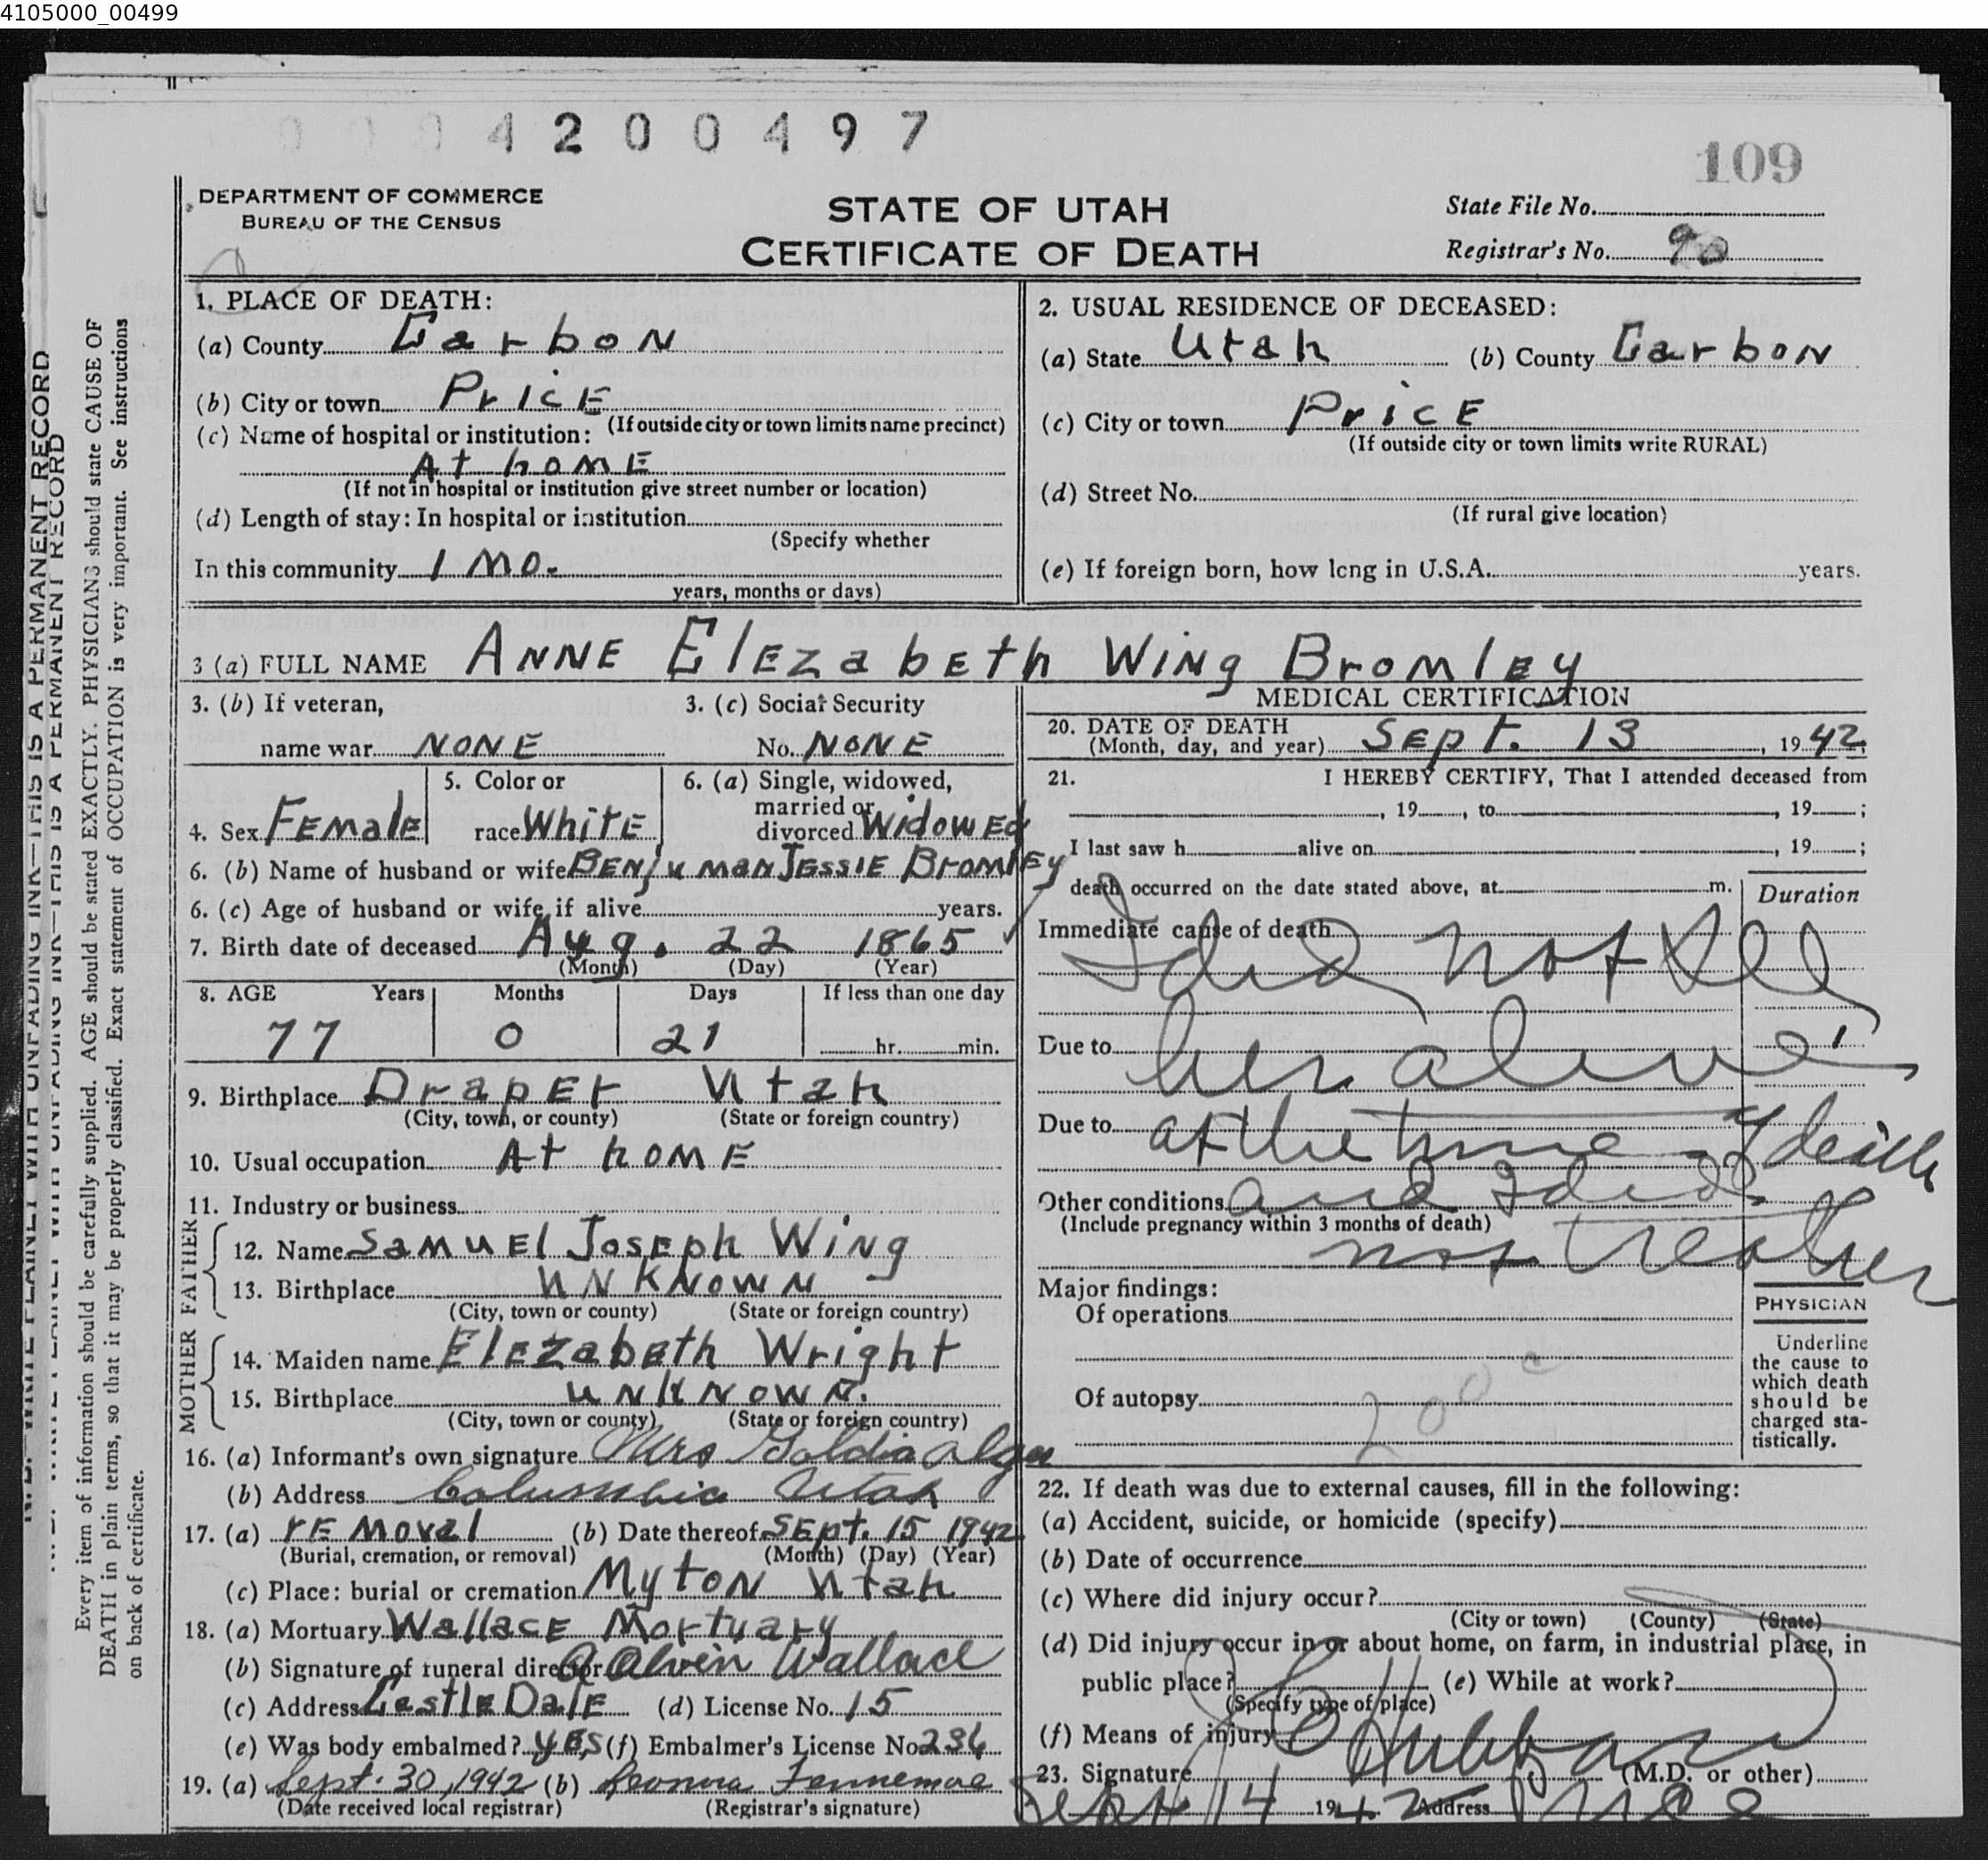 4105000_00499
0004200497
109
DEPARTMENT OF COMMERCE
BUREAU OF THE CENSUS
STATE OF UTAH
CERTIFICATE OF DEATH
State File No.
Registrar's No. 90
N. B.—WRITE PLAINLY WITH UNFADING INK—THIS IS A PERMANENT RECORD
Every item of information should be carefully supplied. AGE should be stated EXACTLY. PHYSICIANS should state CAUSE OF
DEATH in plain terms, so that it may be properly classified. Exact statement of OCCUPATION is very important. See instructions
on back of certificate.
1. PLACE OF DEATH:
(a) County Carbon
(b) City or town Price
(If outside city or town limits name precinct)
(c) Name of hospital or institution:
At home
(If not in hospital or institution give street number or location)
(d) Length of stay: In hospital or institution
(Specify whether
In this community 1 Mo.
years, months or days)
2. USUAL RESIDENCE OF DECEASED:
(a) State Utah (b) County Carbon
(c) City or town Price
(If outside city or town limits write RURAL)
(d) Street No.
(If rural give location)
(e) If foreign born, how long in U.S.A. years.
3 (a) FULL NAME Anne Elezabeth Wing Bromley
3. (b) If veteran, 3. (c) Social Security
name war NONE No. NONE
4. Sex Female 5. Color or race White 6. (a) Single, widowed, married or divorced Widowed
6. (b) Name of husband or wife Benjuman Jessie Bromley
6. (c) Age of husband or wife if alive years.
7. Birth date of deceased Aug. 22 1865
(Month) (Day) (Year)
8. AGE Years Months Days If less than one day
77 0 21 hr. min.
9. Birthplace Draper Utah
(City, town, or county) (State or foreign country)
10. Usual occupation At home
11. Industry or business
FATHER
12. Name Samuel Joseph Wing
13. Birthplace Unknown
(City, town or county) (State or foreign country)
MOTHER
14. Maiden name Elezabeth Wright
15. Birthplace Unknown.
(City, town or county) (State or foreign country)
16. (a) Informant's own signature Mrs Goldia Alger
(b) Address Columbia Utah
17. (a) removal (b) Date thereof Sept. 15 1942
(Burial, cremation, or removal) (Month) (Day) (Year)
(c) Place: burial or cremation Myton Utah
18. (a) Mortuary Wallace Mortuary
(b) Signature of funeral director A Alvin Wallace
(c) Address Castle Dale (d) License No. 15
(e) Was body embalmed? yes (f) Embalmer's License No. 236
19. (a) Sept. 30, 1942 (b) Leonora Fennemore
(Date received local registrar) (Registrar's signature)
MEDICAL CERTIFICATION
20. DATE OF DEATH
(Month, day, and year) Sept. 13, 1942
21. I HEREBY CERTIFY, That I attended deceased from
, 19 , to , 19 ;
I last saw h alive on , 19 ;
death occurred on the date stated above, at m.
Duration
Immediate cause of death
I did not see
Due to her alive
Due to at the time of death
Other conditions and I did
(Include pregnancy within 3 months of death)
not treat her
Major findings:
Of operations
Of autopsy
200c
PHYSICIAN
Underline
the cause to
which death
should be
charged sta-
tistically.
22. If death was due to external causes, fill in the following:
(a) Accident, suicide, or homicide (specify)
(b) Date of occurrence
(c) Where did injury occur?
(City or town) (County) (State)
(d) Did injury occur in or about home, on farm, in industrial place, in
public place? (e) While at work?
(Specify type of place)
(f) Means of injury
23. Signature Hubbard (M.D. or other)
Sept 14 1942 Address Price